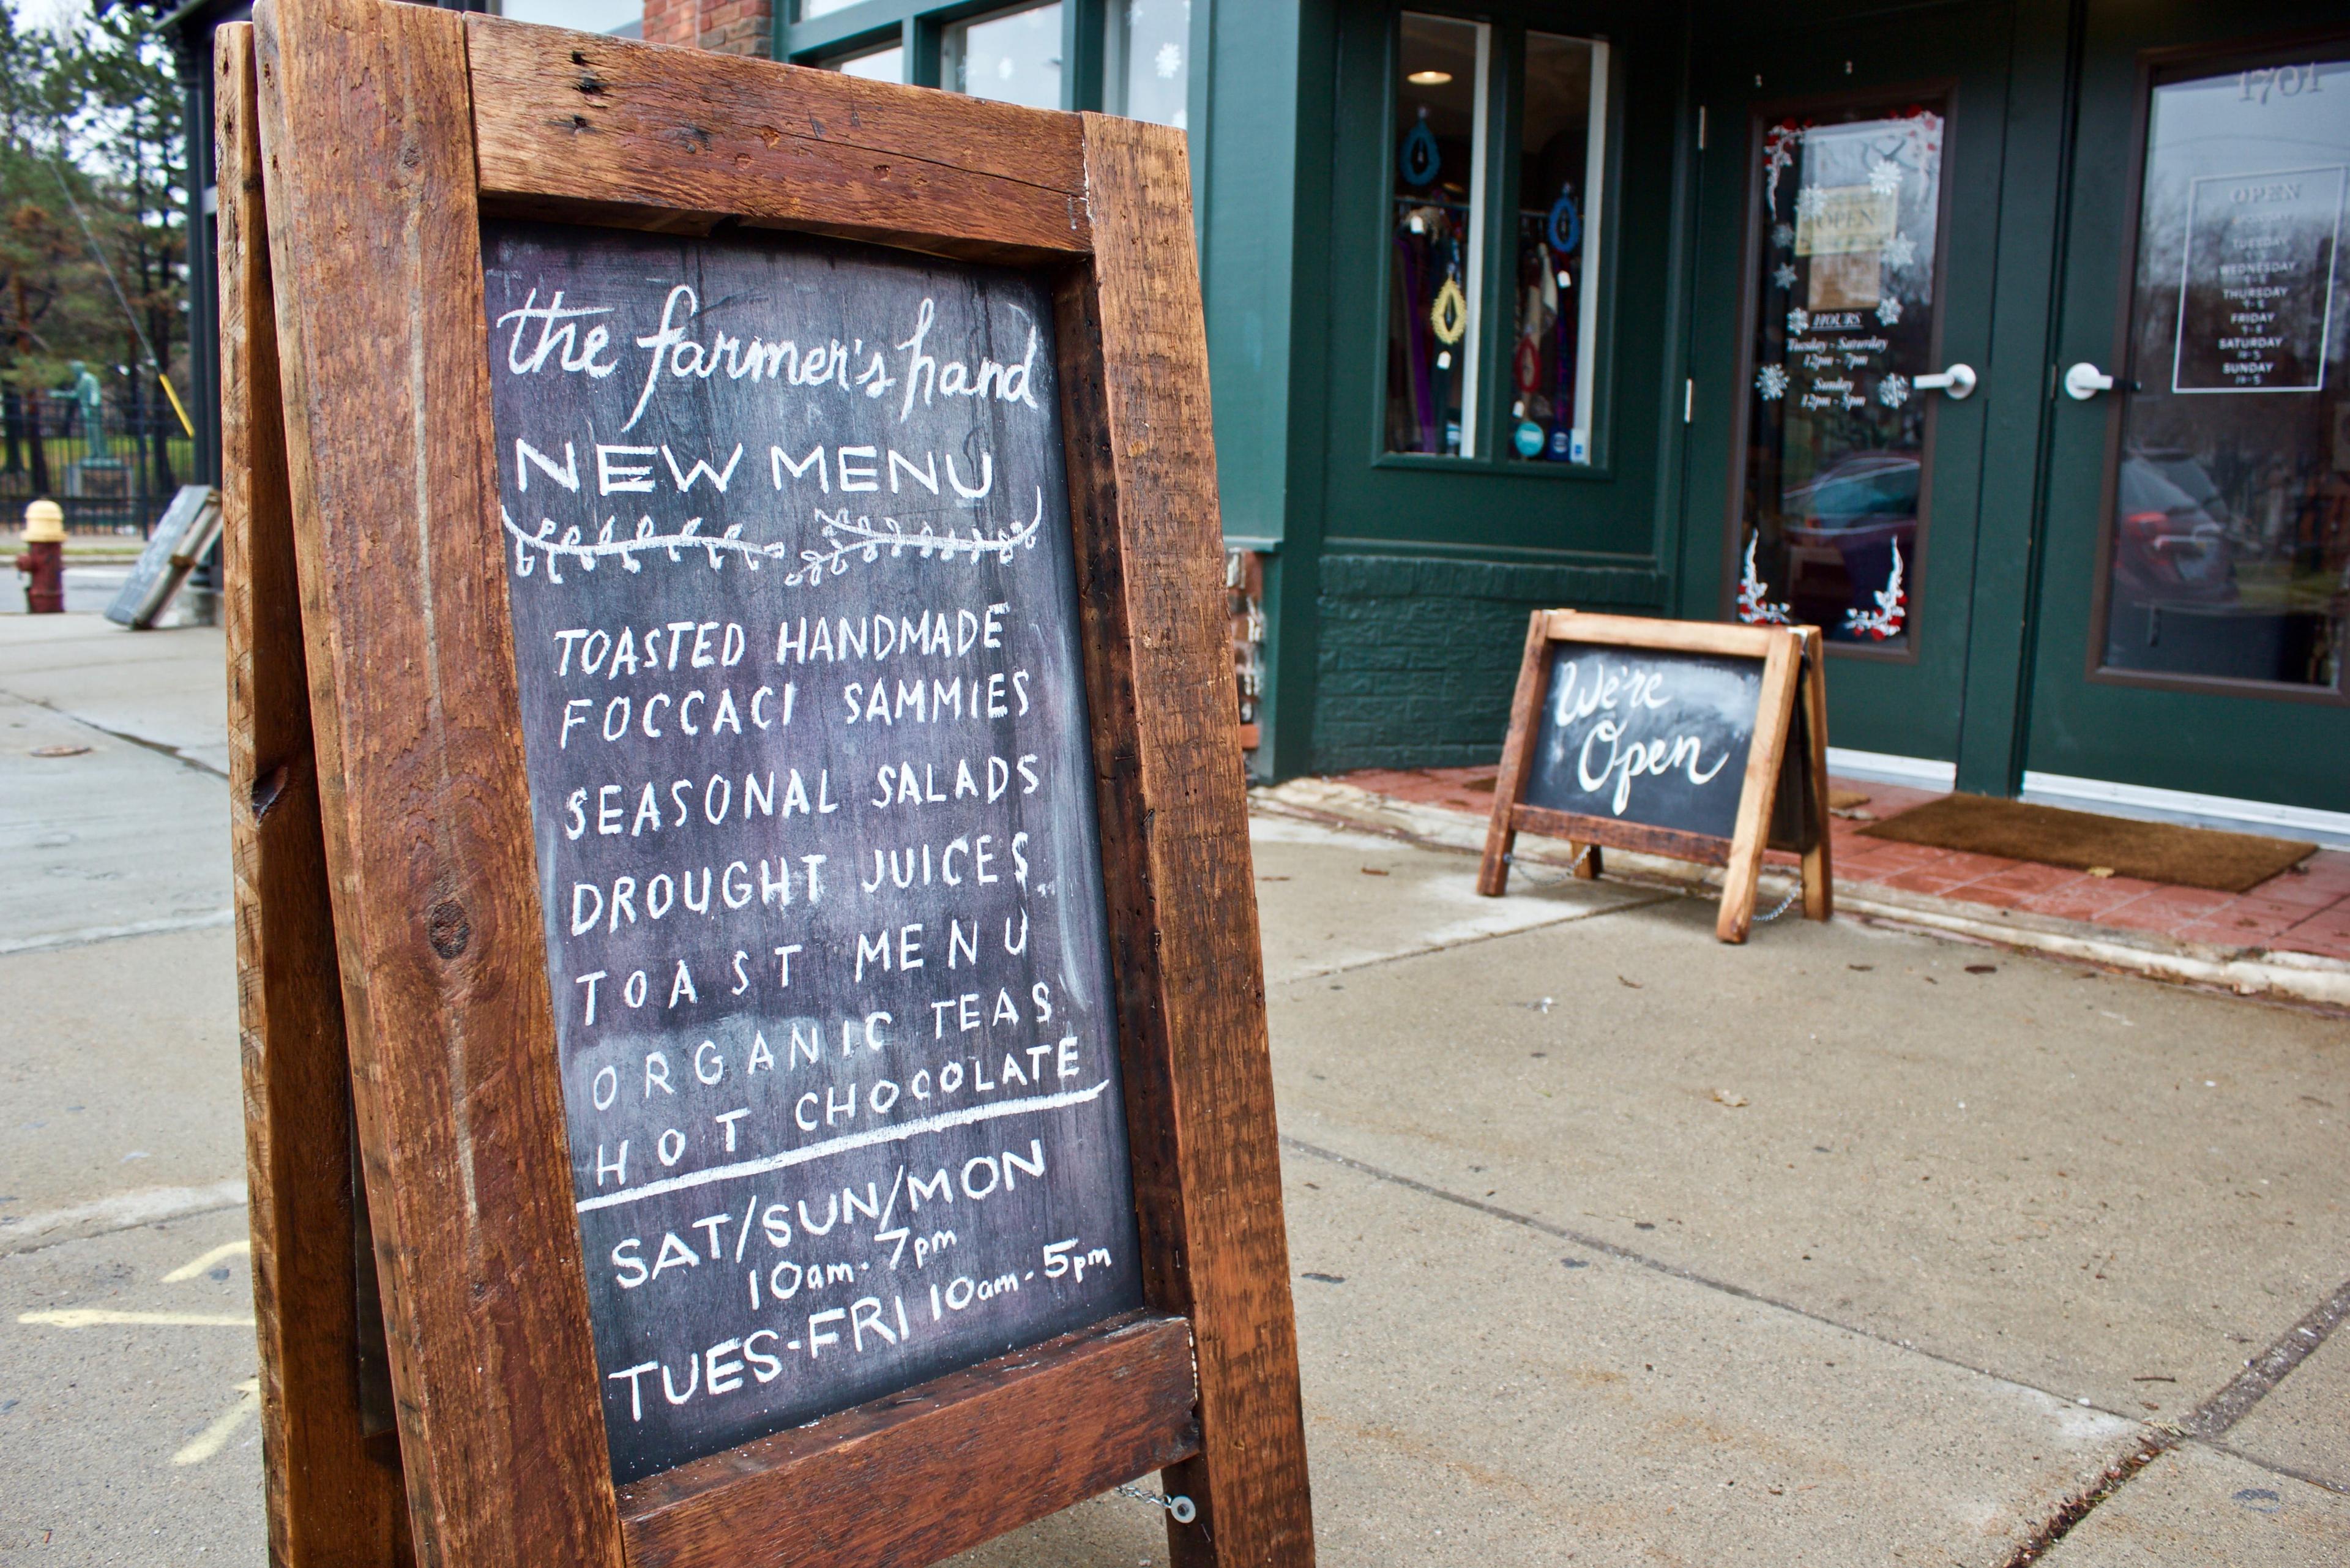 the farmer's hand
NEW MENU
TOASTED HANDMADE
FOCCACI SAMMIES
SEASONAL SALADS
DROUGHT JUICES
TOAST MENU
ORGANIC TEAS
HOT CHOCOLATE
SAT/SUN/MON
10am - 7pm
TUES-FRI 10am - 5pm
We're
Open
OPEN
HOURS
Tuesday - Saturday
12pm - 7pm
Sunday
12pm - 5pm
1701
OPEN
TUESDAY
WEDNESDAY
THURSDAY
FRIDAY
SATURDAY
SUNDAY